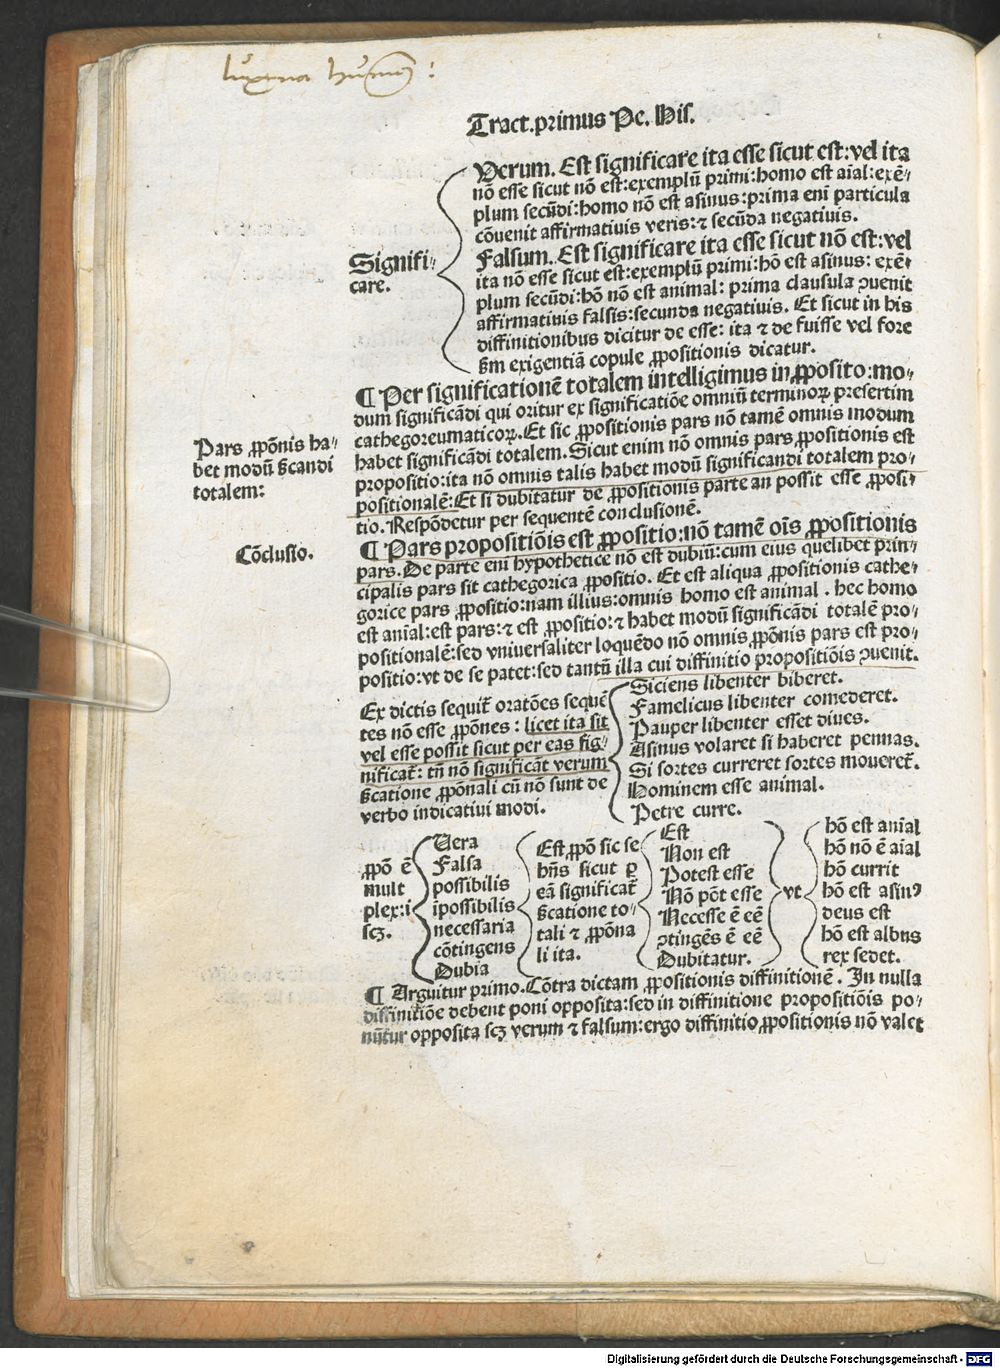 Tract.primus Pe. His.
Verum. Est significare ita esse sicut est:vel ita
nō esse sicut nō est:exemplū primi:homo est aīal:exē-
plum secūdi:homo nō est asinus:prima enī particula
cōuenit affirmatiuis veris:⁊ secūda negatiuis.
Signifi-
care.
Falsum. Est significare ita esse sicut nō est:vel
ita nō esse sicut est:exemplū primi:hō est asinus: exē-
plum secūdi:hō nō est animal: prima clausula ꝯuenit
affirmatiuis falsis:secunda negatiuis. Et sicut in his
diffinitionibus dicitur de esse: ita ⁊ de fuisse vel fore
ẜm exigentiā copule ꝓpositionis dicatur.
¶ Per significationē totalem intelligimus in ꝓposito:mo-
dum significādi qui oritur ex significatiōe omniū terminoꝝ presertim
cathegoreumaticoꝝ. Et sic ꝓpositionis pars nō tamē omnis modum
habet significādi totalem. Sicut enim nō omnis pars ꝓpositionis est
propositio:ita nō omnis talis habet modū significandi totalem pro-
positionalē:Et si dubitatur de ꝓpositionis parte an possit esse ꝓposi-
tio. Respōdetur per sequentē conclusionē.
Pars ꝓpōnis ha-
bet modū ẜcandi
totalem:
Cōclusio.
¶ Pars propositiōis est ꝓpositio:nō tamē oīs ꝓpositionis
pars. De parte enī hypothetice nō est dubiū:cum eius quelibet prin-
cipalis pars sit cathegorica ꝓpositio. Et est aliqua ꝓpositionis cathe-
gorice pars ꝓpositio:nam illius:omnis homo est animal . hec homo
est anīal:est pars:⁊ est ꝓpositio:⁊ habet modū significādi totalē pro-
positionalē:sed vniuersaliter loquēdo nō omnis ꝓpōnis pars est pro-
positio:vt de se patet:sed tantū illa cui diffinitio propositiōis ꝯuenit.
Ex dictis sequit᷑ oratōes sequē
tes nō esse ꝓpōnes : licet ita sit
vel esse possit sicut per eas sig-
nificat᷑: tn̄ nō significāt verum
ẜcatione ꝓpōnali cū nō sunt de
verbo indicatiui modi.
Siciens libenter biberet.
Famelicus libenter comederet.
Pauper libenter esset diues.
Asinus volaret si haberet pennas.
Si sortes curreret sortes moueret᷑.
Hominem esse animal.
Petre curre.
ꝓpō ē
mult
plex:i
scꝫ.
Vera
Falsa
possibilis
īpossibilis
necessaria
cōtingens
Dubia
Est ꝓpō sic se
hn̄s sicut ꝑ
eā significat᷑
ẜcatione to-
tali ⁊ ꝓpōna
li ita.
Est
Non est
Potest esse
Nō pōt esse
Necesse ē eē
ꝯtingēs ē eē
Dubitatur.
vt
hō est anīal
hō nō ē aīal
hō currit
hō est asinꝰ
deus est
hō est albus
rex sedet.
¶ Arguitur primo. Cōtra dictam ꝓpositionis diffinitionē. In nulla
diffinitiōe debent poni opposita:sed in diffinitione propositiōis po-
nūtur opposita scꝫ verum ⁊ falsum:ergo diffinitio ꝓpositionis nō valet
Digitalisierung gefördert durch die Deutsche Forschungsgemeinschaft - DFG